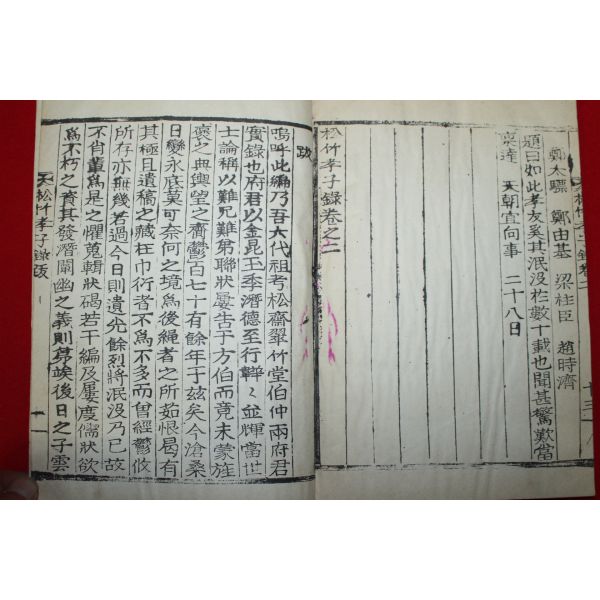 鄭木驃 鄭由基 梁柱臣 趙時濟
題曰如此孝友奚其泯沒於數十載也聞甚驚歎當
稟達 天朝宜向事 二十八日
松竹孝子錄卷之二
松竹孝子錄卷二
跋
嗚呼此編乃吾六代祖考松齋翠竹堂伯仲兩府君
實錄也府君以金昆玉季潛德至行
並輝當世
士論稱以難兄難弟聯狀屢告于方伯而竟未蒙旌
褒之典輿望之齎鬱百七十有餘年于玆矣今滄桑
日變永底莫可奈何之境爲後繩者之所茹恨曷有
其極且遺稿之藏在巾衍者不爲不多而曾經鬱攸
所存亦無幾若過今日則遺光餘烈將泯沒乃已故
不肖輩爲是之懼蒐輯狀碣若干編及屢度儒狀欲
爲不朽之資其發潛闡幽之義則第竢後日之子雲
松竹孝子錄跋
一